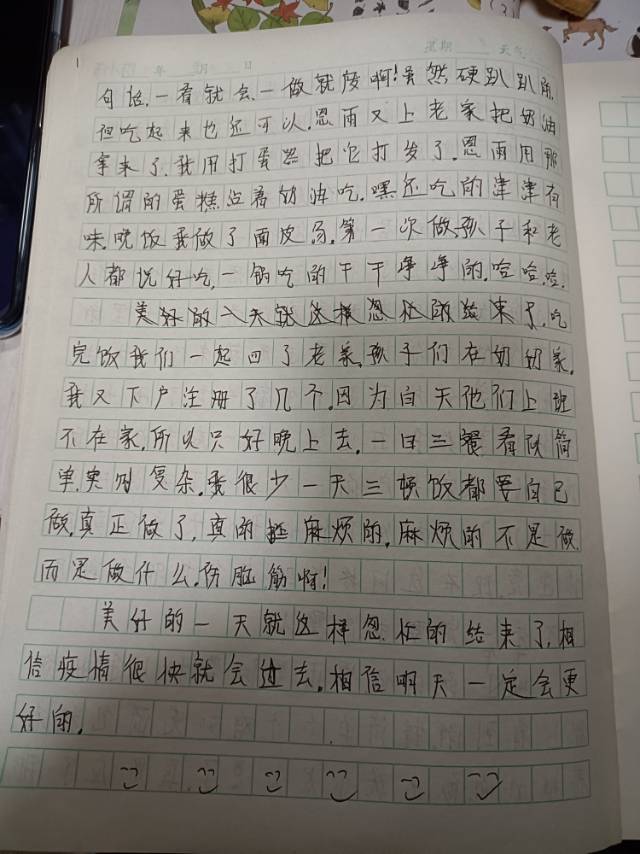 年 月 日 星期 天气
自恰.一看就会.一做就废啊!虽然硬趴趴
但吃起来也还可以.恩雨又上老家把奶油
拿来了.我用打蛋器把它打发了.恩雨用那
所谓的蛋糕沾着奶油吃.嘿还吃的津津有
味.晚饭我做了面皮汤.第一次做.孩子和老
人都说好吃.一锅吃的干干净净的.哈哈.哈.
美好的一天就这样忽忙的结束了.吃
完饭我们一起回了老家.孩子们在奶奶家.
我又下户注册了几个.因为白天他们上班
不在家.所以只好晚上去.一日三餐看似简
单.实则复杂.我很少一天三顿饭都要自己
做.真正做了.真的挺麻烦的.麻烦的不是做.
而是做什么.伤脑筋啊!
美好的一天就这样忽忙的结束了.相
信疫情很快就会过去.相信明天一定会更
好的.